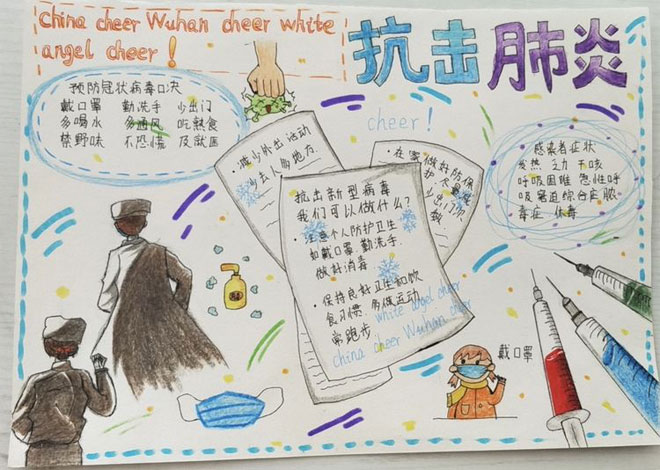 China cheer Wuhan cheer white
angel cheer!
抗击肺炎
预防冠状病毒口决
戴口罩 勤洗手 少出门
多喝水 多通风 吃熟食
禁野味 不恐慌 及就医
cheer!
·减少外出活动
少去人多地方.
·在家做好防保
少出门
感染者症状
发热 乏力 干咳
呼吸困难 急性呼
吸窘迫综合症脓
毒症 休毒
抗击新型病毒
我们可以做什么?
·注意个人防护卫生
如戴口罩.勤洗手.
做好消毒
·保持良好卫生和饮
食习惯.多做运动
常跑步
white angel cheer
china cheer Wuhan cheer
戴口罩